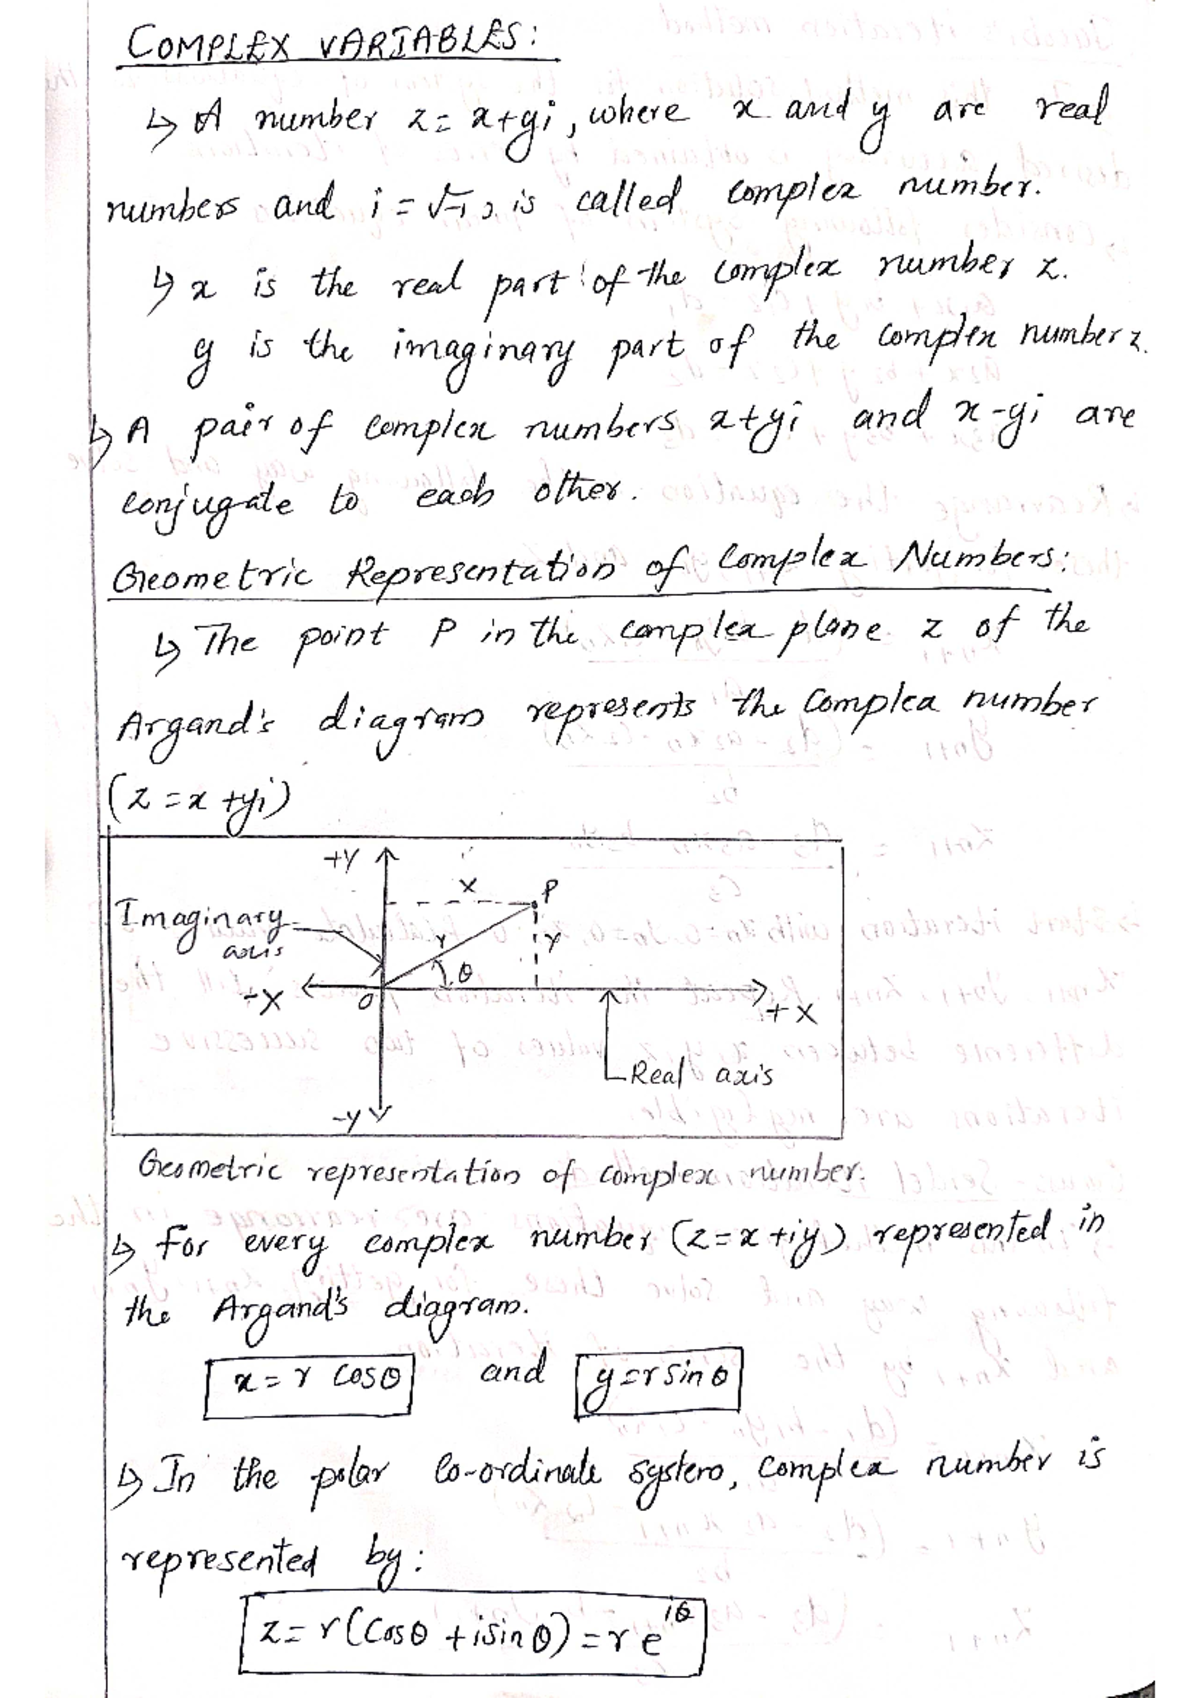 COMPLEX VARIABLES:
↳ A number z = x+yi, where x and y are real
numbers and i = √-1, is called complex number.
↳ x is the real part of the complex number z.
y is the imaginary part of the complex number z.
↳ A pair of complex numbers x+yi and x-yi are
conjugate to each other.
Geometric Representation of Complex Numbers:
↳ The point P in the complex plane z of the
Argand's diagram represents the complex number
(z = x + yi)
+Y
X P
Imaginary
axis
r Y
θ
-X O +X
Real axis
-Y
Geometric representation of complex number.
↳ For every complex number (z = x + iy) represented in
the Argand's diagram.
x = r cosθ and y = r sin θ
↳ In the polar co-ordinate system, complex number is
represented by:
z = r(cosθ + isinθ) = r e^iθ